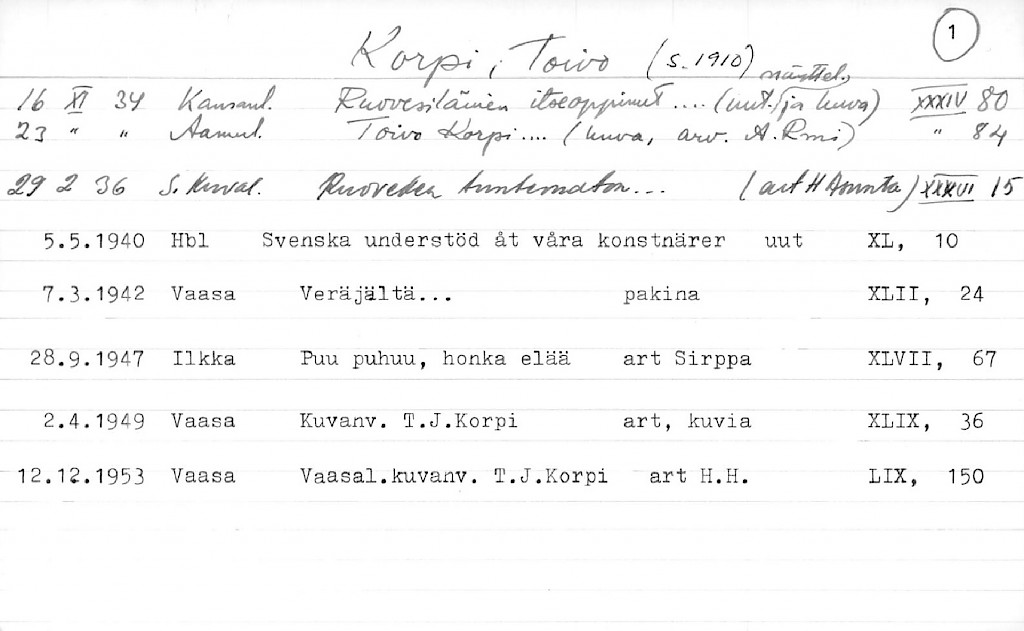 1
Korpi, Toivo (s. 1910)
näyttel.
16 XI 34 Kansanl. Ruovesiläinen itseoppinut.... (uut. ja kuva) XXXIV 80
23 " " Aamul. Toivo Korpi.... (kuva, arv. A. Rmi) " 84
29 2 36 S. Kuval. Ruoveden tuntematon... (art H Asunta) XXXVI 15
5.5.1940 Hbl Svenska understöd åt våra konstnärer uut XL, 10
7.3.1942 Vaasa Veräjältä... pakina XLII, 24
28.9.1947 Ilkka Puu puhuu, honka elää art Sirppa XLVII, 67
2.4.1949 Vaasa Kuvanv. T.J.Korpi art, kuvia XLIX, 36
12.12.1953 Vaasa Vaasal.kuvanv. T.J.Korpi art H.H. LIX, 150